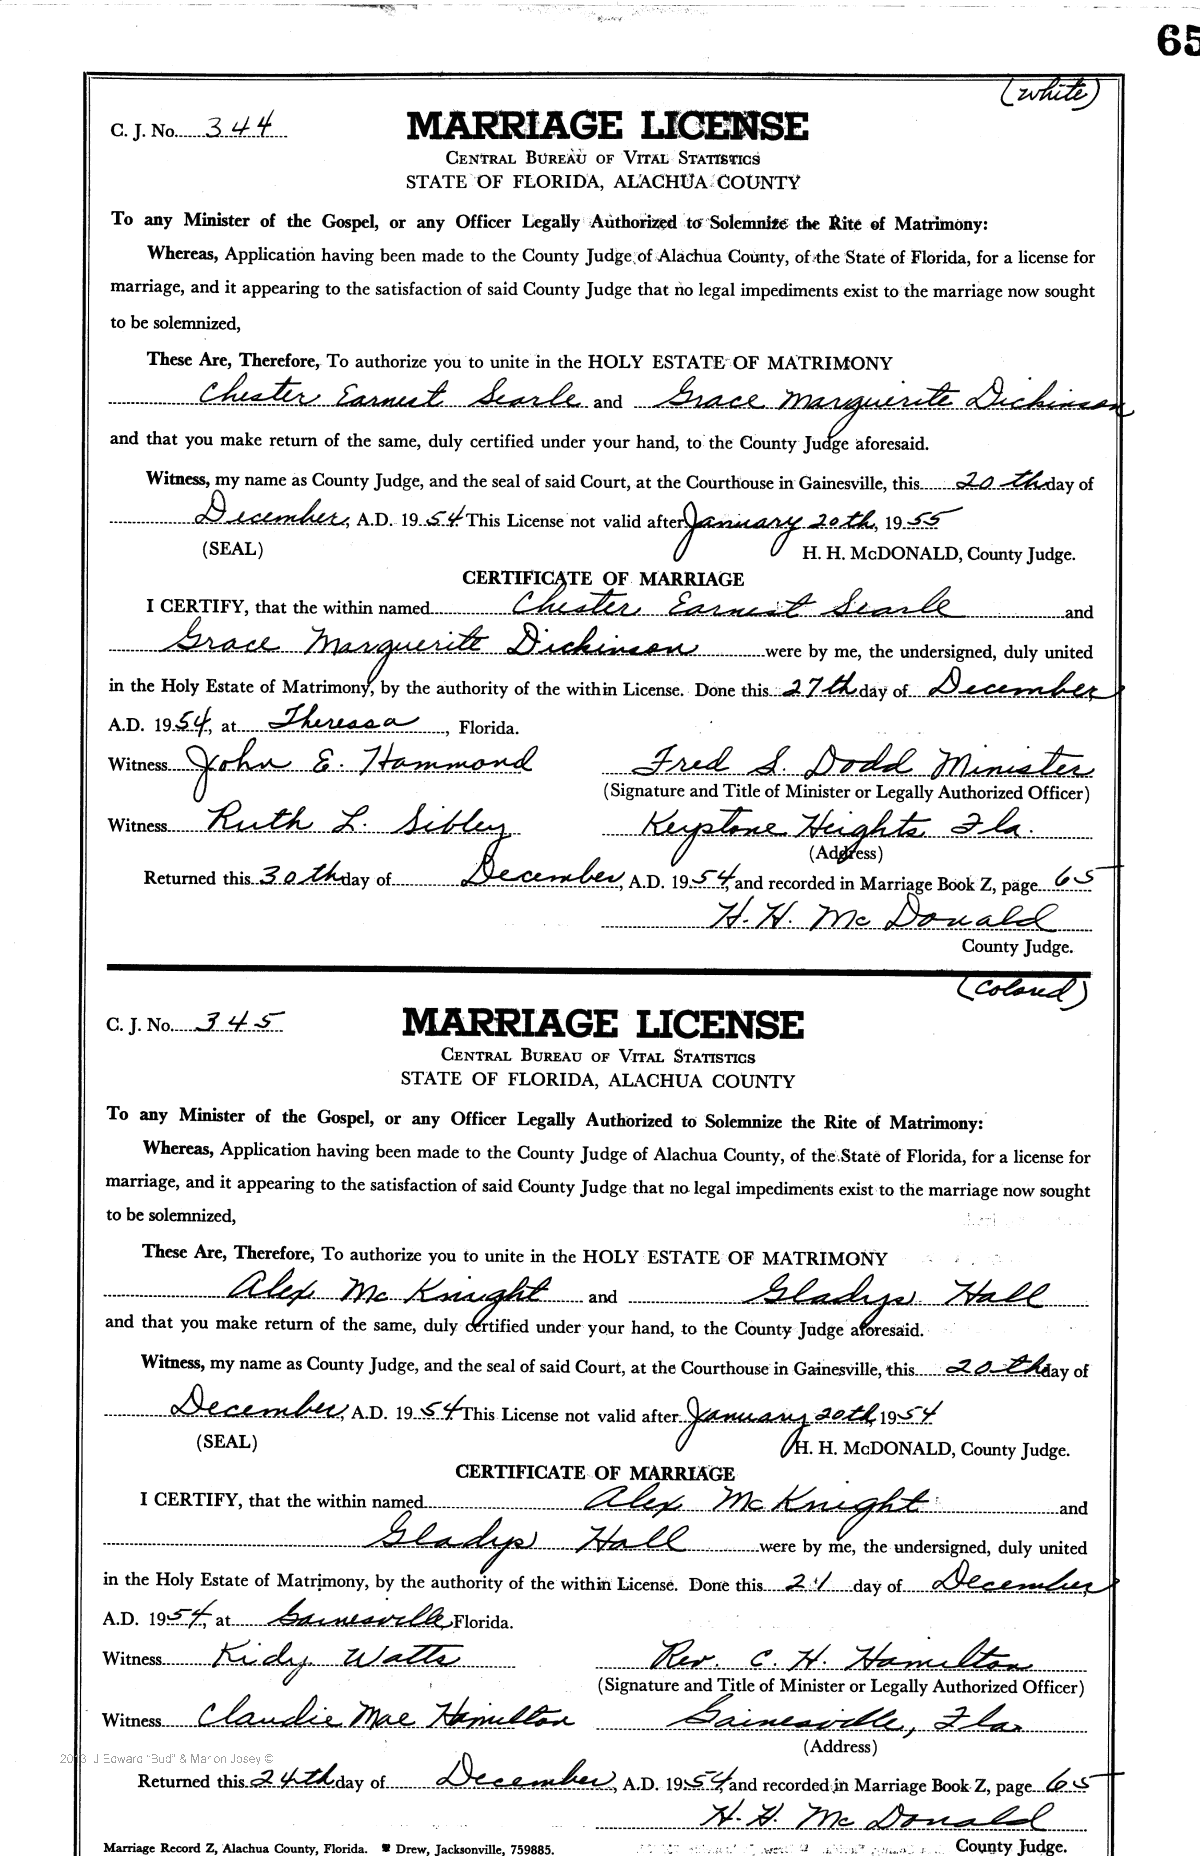 65
(white)
C. J. No. 344
MARRIAGE LICENSE
CENTRAL BUREAU OF VITAL STATISTICS
STATE OF FLORIDA, ALACHUA COUNTY
To any Minister of the Gospel, or any Officer Legally Authorized to Solemnize the Rite of Matrimony:
Whereas, Application having been made to the County Judge of Alachua County, of the State of Florida, for a license for
marriage, and it appearing to the satisfaction of said County Judge that no legal impediments exist to the marriage now sought
to be solemnized,
These Are, Therefore, To authorize you to unite in the HOLY ESTATE OF MATRIMONY
Chester Earnest Searle and Grace Marguerite Dickinson
and that you make return of the same, duly certified under your hand, to the County Judge aforesaid.
Witness, my name as County Judge, and the seal of said Court, at the Courthouse in Gainesville, this 20th day of
December, A.D. 1954 This License not valid after January 20th, 1955
(SEAL) H. H. McDONALD, County Judge.
CERTIFICATE OF MARRIAGE
I CERTIFY, that the within named Chester Earnest Searle and
Grace Marguerite Dickinson were by me, the undersigned, duly united
in the Holy Estate of Matrimony, by the authority of the within License. Done this 27th day of December,
A.D. 1954, at Theressa, Florida.
Witness John E. Hammond Fred S. Dodd Minister
(Signature and Title of Minister or Legally Authorized Officer)
Witness Ruth L. Sibley Keystone Heights, Fla.
(Address)
Returned this 30th day of December, A.D. 1954, and recorded in Marriage Book Z, page 65
H. H. McDonald
County Judge.
(Colored)
C. J. No. 345
MARRIAGE LICENSE
CENTRAL BUREAU OF VITAL STATISTICS
STATE OF FLORIDA, ALACHUA COUNTY
To any Minister of the Gospel, or any Officer Legally Authorized to Solemnize the Rite of Matrimony:
Whereas, Application having been made to the County Judge of Alachua County, of the State of Florida, for a license for
marriage, and it appearing to the satisfaction of said County Judge that no legal impediments exist to the marriage now sought
to be solemnized,
These Are, Therefore, To authorize you to unite in the HOLY ESTATE OF MATRIMONY
Alex McKnight and Gladys Hall
and that you make return of the same, duly certified under your hand, to the County Judge aforesaid.
Witness, my name as County Judge, and the seal of said Court, at the Courthouse in Gainesville, this 20th day of
December, A.D. 1954 This License not valid after January 20th, 1954
(SEAL) H. H. McDONALD, County Judge.
CERTIFICATE OF MARRIAGE
I CERTIFY, that the within named Alex McKnight and
Gladys Hall were by me, the undersigned, duly united
in the Holy Estate of Matrimony, by the authority of the within License. Done this 21 day of December,
A.D. 1954, at Gainesville, Florida.
Witness Kidy Watts Rev. C. H. Hamilton
(Signature and Title of Minister or Legally Authorized Officer)
Witness Claudie Mae Hamilton Gainesville, Fla.
(Address)
2013 J Edward "Bud" & Marion Josey ©
Returned this 24th day of December, A.D. 1954, and recorded in Marriage Book Z, page 65
H. H. McDonald
Marriage Record Z, Alachua County, Florida. Drew, Jacksonville, 759885. County Judge.